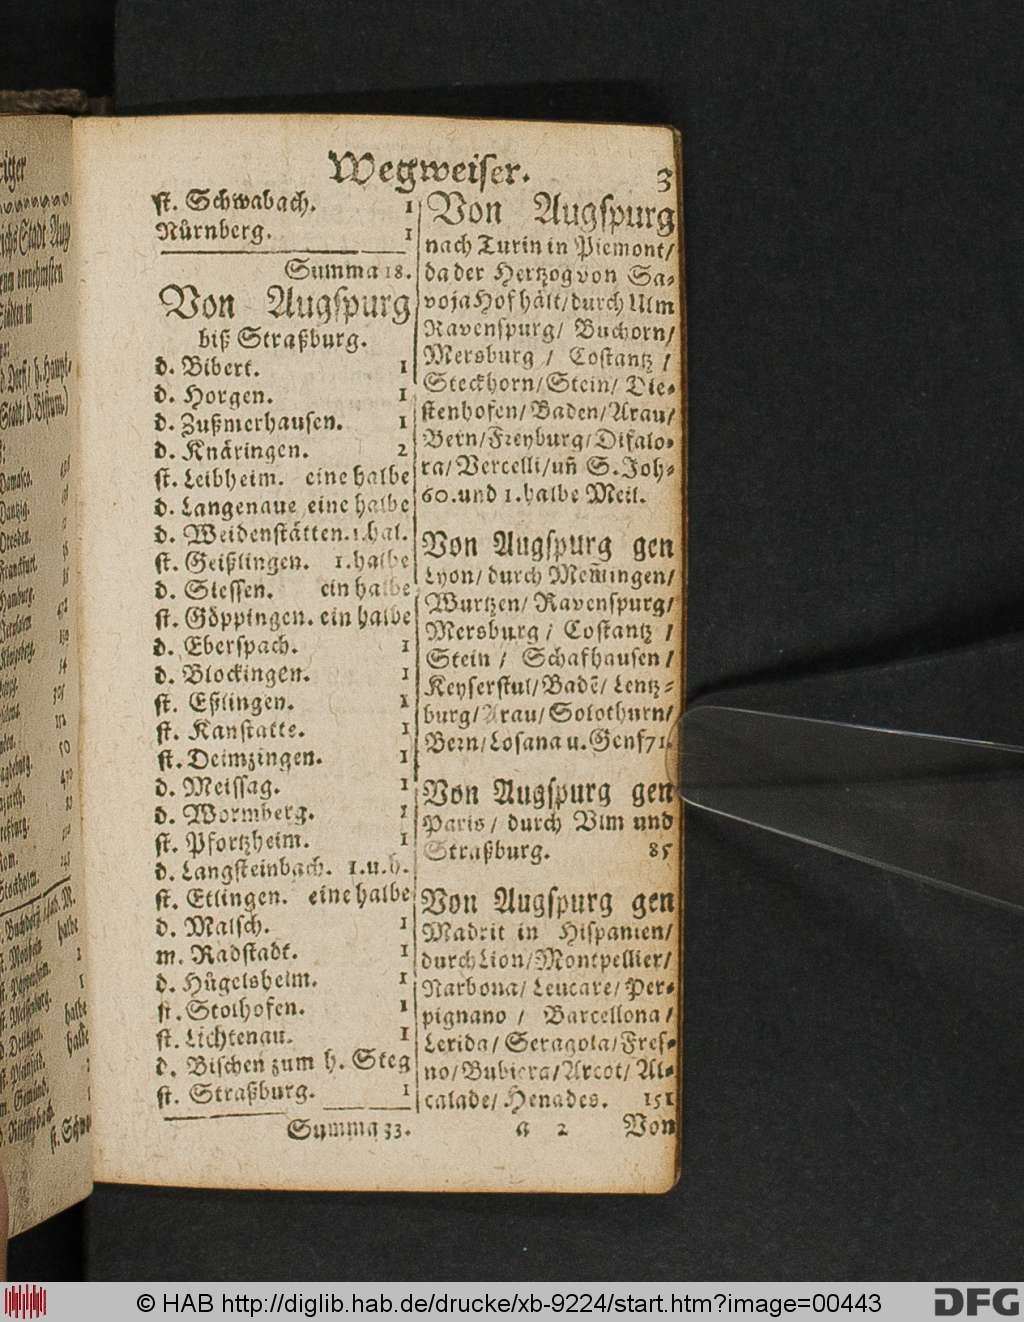 Wegweiser. 3
st. Schwabach. 1
Nürnberg. 1
Summa 18.
Von Augspurg
biß Straßburg.
d. Bibert. 1
d. Horgen. 1
d. Zußmerhausen. 1
d. Knäringen. 2
st. Leibheim. eine halbe
d. Langenaue eine halbe
d. Weidenstätten. 1. hal.
st. Geißlingen. 1. halbe
d. Siessen. ein halbe
st. Göppingen. ein halbe
d. Eberspach. 1
d. Blockingen. 1
st. Eßlingen. 1
st. Kanstatte. 1
st. Deimzingen. 1
d. Meissag. 1
d. Wormberg. 1
st. Pfortzheim. 1
d. Langsteinbach. 1. u. h.
st. Etlingen. eine halbe
d. Malsch. 1
m. Radstadt. 1
d. Hügelsheim. 1
st. Stolhofen. 1
st. Lichtenau. 1
d. Bischen zum h. Steg
st. Straßburg. 1
Summa 33.
Von Augspurg
nach Turin in Piemont/
da der Hertzog von Sa-
voja Hof hält/ durch Ulm
Ravenspurg/ Buchorn/
Mersburg / Costantz /
Steckhorn/ Stein/ Die-
stenhofen/ Baden/ Arau/
Bern/ Freyburg/ Difalo-
ra/ Vercelli/ uñ S. Joh-
60. und 1. halbe Meil.
Von Augspurg gen
Lyon/ durch Mem̃ingen/
Wurtzen/ Ravenspurg/
Mersburg / Costantz /
Stein / Schafhausen /
Keyserstul/ Badẽ/ Lentz-
burg/ Arau/ Solothurn/
Bern/ Losana u. Genf 71.
Von Augspurg gen
Paris/ durch Vlm und
Straßburg. 85
Von Augspurg gen
Madrit in Hispanien/
durch Lion/ Montpellier/
Narbona/ Leucare/ Per-
pignano / Barcellona/
Lerida/ Seragola/ Fres-
no/ Bubiera/ Arcot/ Al-
calade/ Henades. 151
a 2 Von
© HAB http://diglib.hab.de/drucke/xb-9224/start.htm?image=00443
DFG